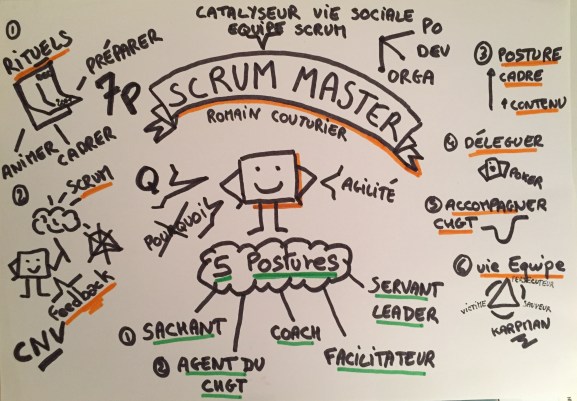 CATALYSEUR VIE SOCIALE
EQUIPE SCRUM
PO
DEV
ORGA
SCRUM MASTER
ROMAIN COUTURIER
1
RITUELS
PRÉPARER
7P
ANIMER
CADRER
2
SCRUM
Feedback
CNV
Q
POURQUOI
AGILITÉ
3 POSTURE
CADRE
↑ CONTENU
4 DÉLEGUER
POKER
5 ACCOMPAGNER
CHGT
6 vie Equipe
PERSECUTEUR
VICTIME
SAUVEUR
KARPMAN
5 Postures
1 SACHANT
2 AGENT DU
CHGT
COACH
FACILITATEUR
SERVANT
LEADER